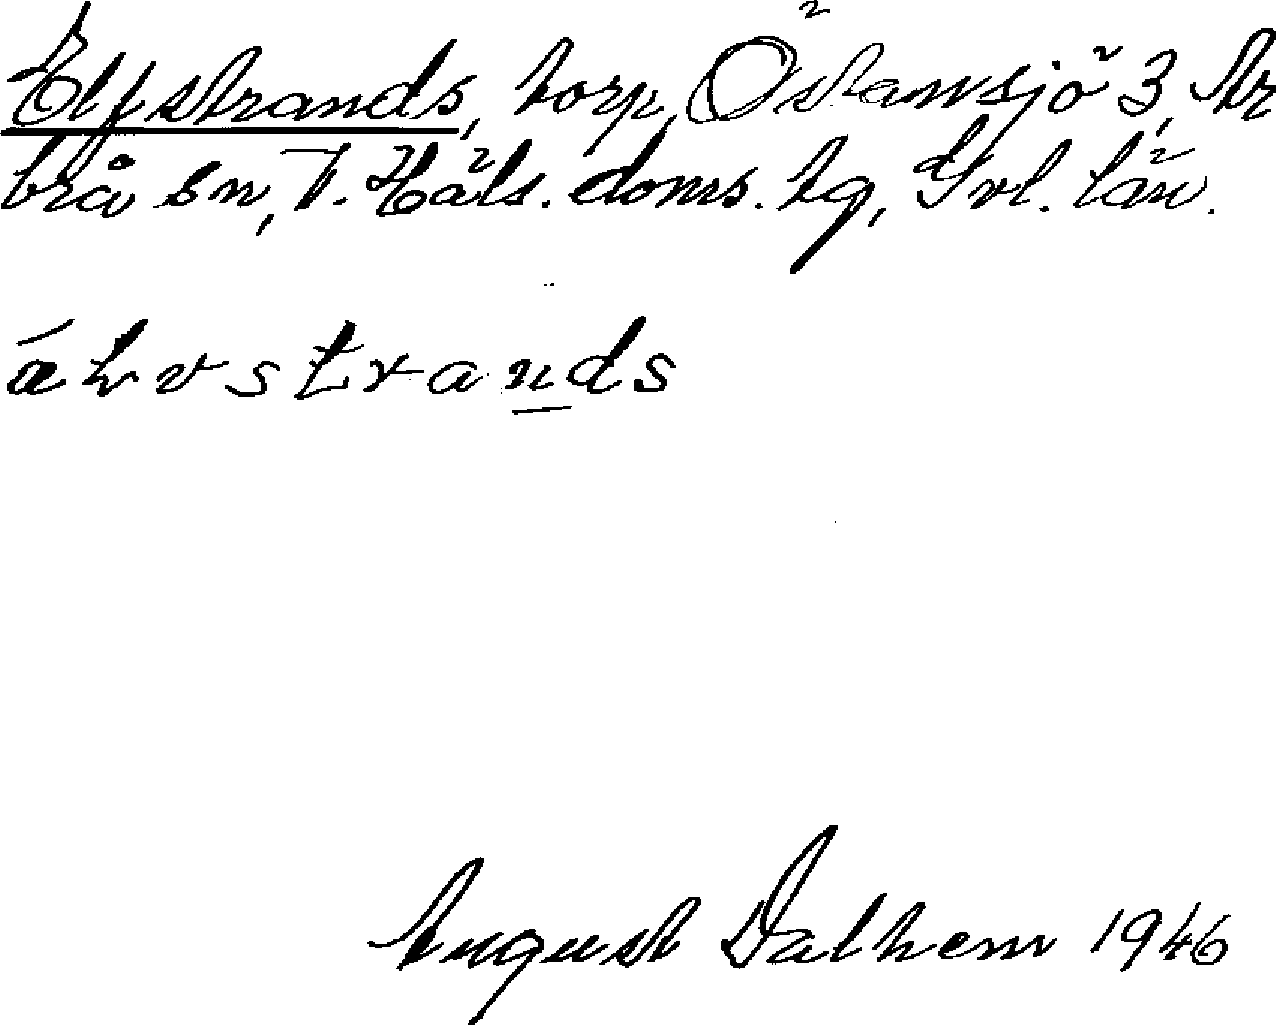 Elfstrands, torp, Östansjö 3, Ar
brå sn, V. Häls. doms. hg, Gvl. län.
á h v s t r a n d s
August Dalhem 1946